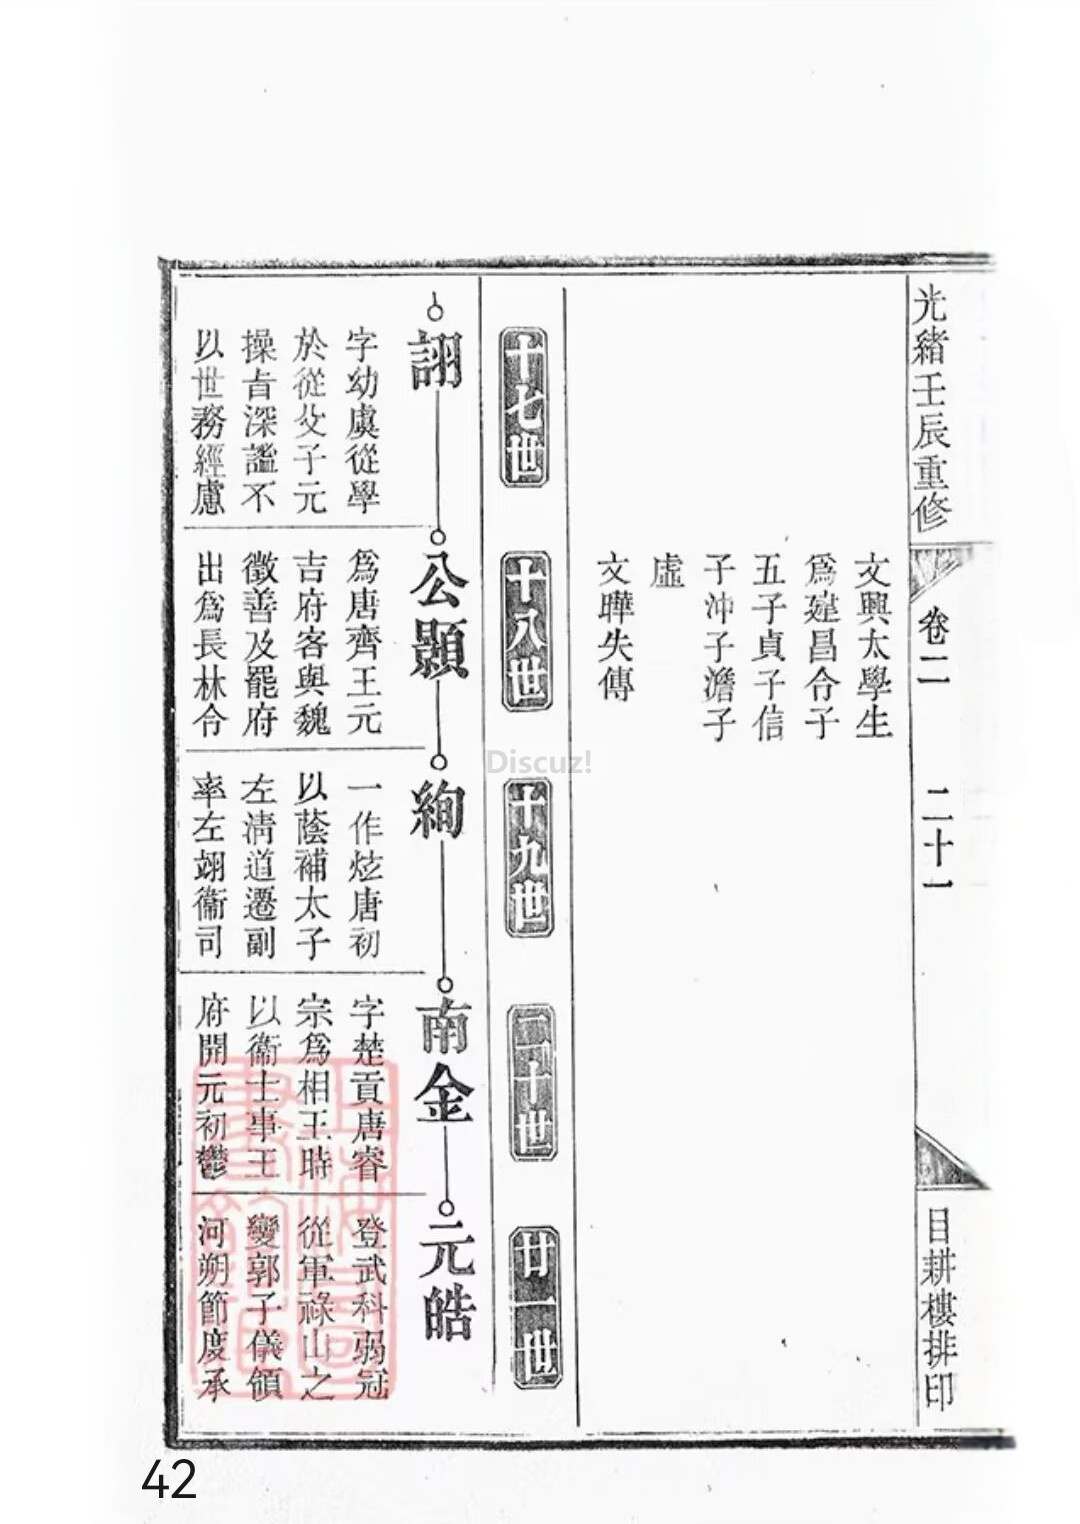 光緒壬辰重修
卷二
二十一
目耕樓排印
文興太學生
爲建昌令子
五子貞子信
子沖子澹子
虛
文曄失傳
十七世
十八世
十九世
二十世
廿一世
詡
字幼虞從學
於從父子元
操旨深謐不
以世務經慮
公顥
爲唐齊王元
吉府客與魏
徵善及罷府
出爲長林令
絢
一作炫唐初
以蔭補太子
左淸道遷副
率左翊衞司
南金
字楚貢唐睿
宗爲相王時
以衞士事王
府開元初鬱
元皓
登武科弱冠
從軍祿山之
變郭子儀領
河朔節度承
Discuz!
42